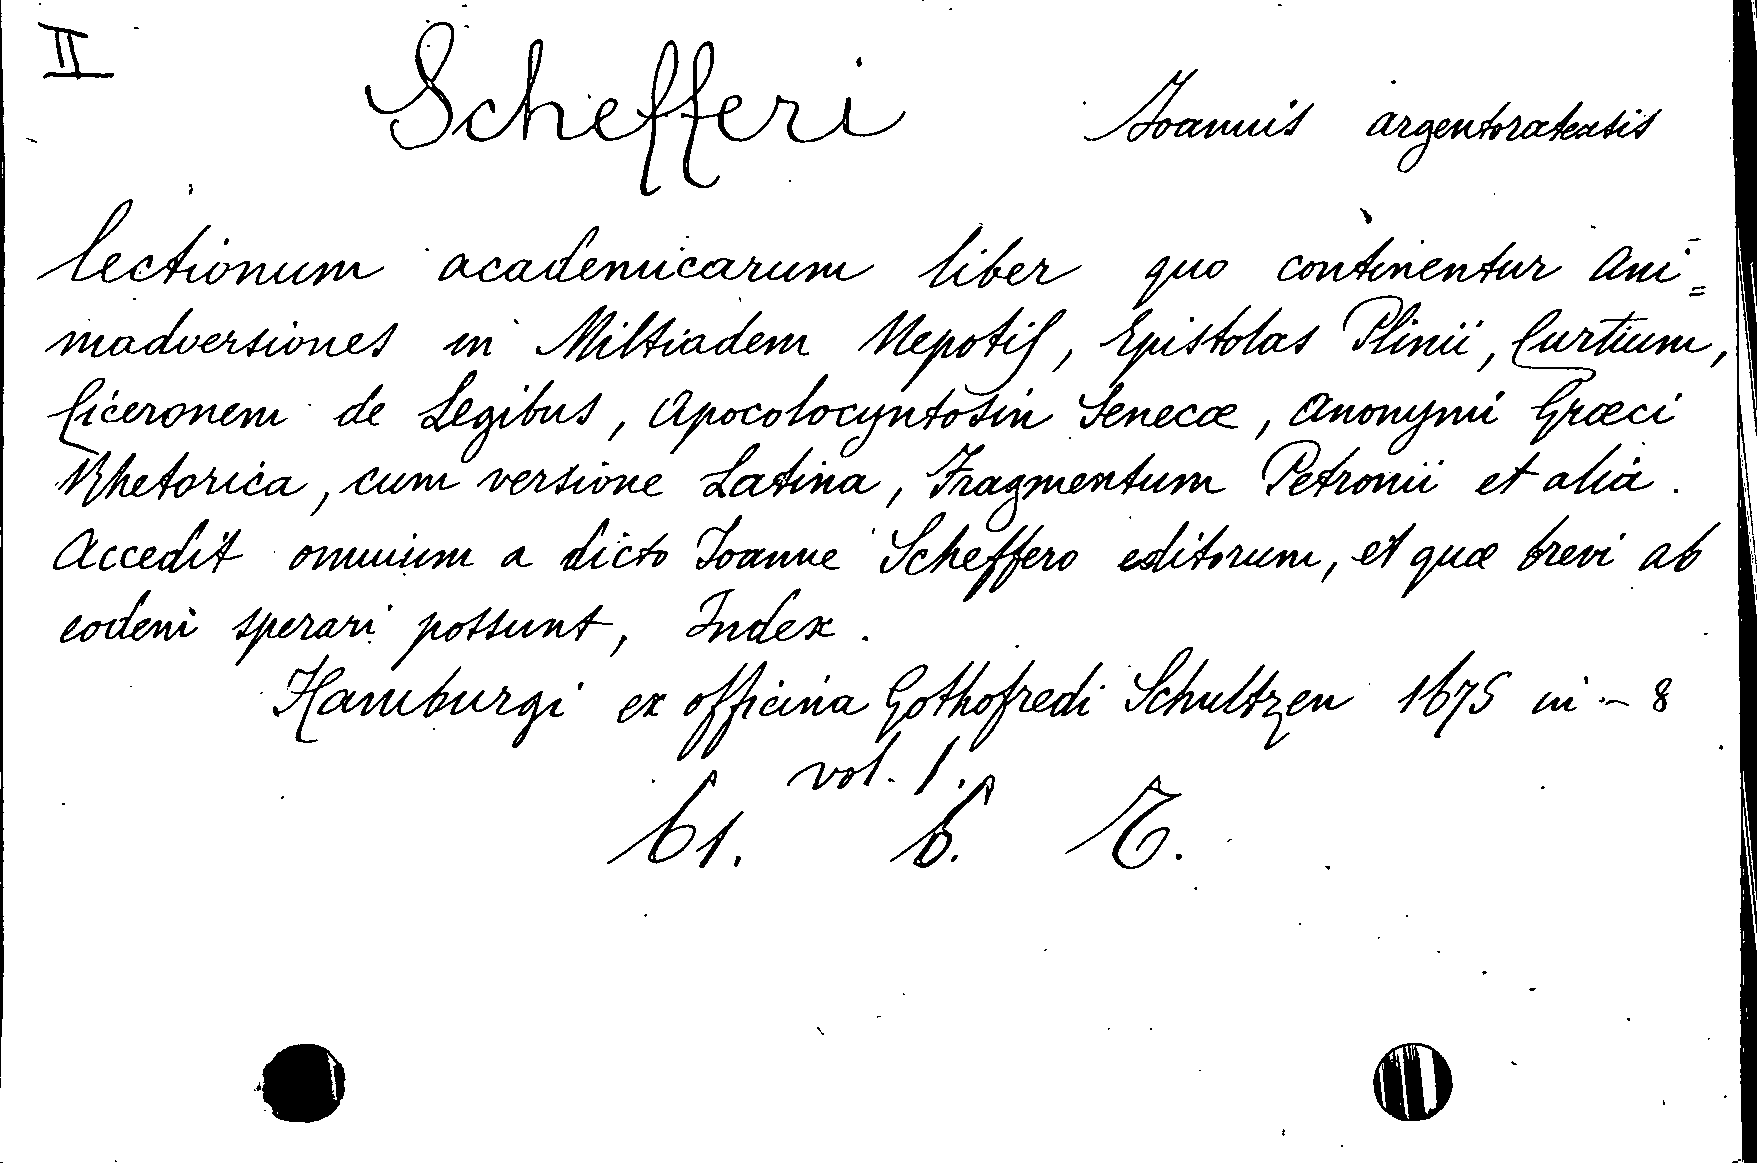 II
Schefferi Joannis argentoratensis
lectionum academicarum liber quo continentur Ani=
madversiones in Miltiadem Nepotis, Epistolas Plinii, Curtium,
Ciceronem de Legibus, Apocolocyntosin Senecæ, Anonymi Græci
Rhetorica, cum versione Latina, Fragmentum Petronii et alia.
Accedit omnium a dicto Joanne Scheffero editorum, et quæ brevi ab
eodem sperari possunt, Index.
Hamburgi ex officina Gothofredi Schultzen 1675 in-8
vol. 1.
61. 6. 7.